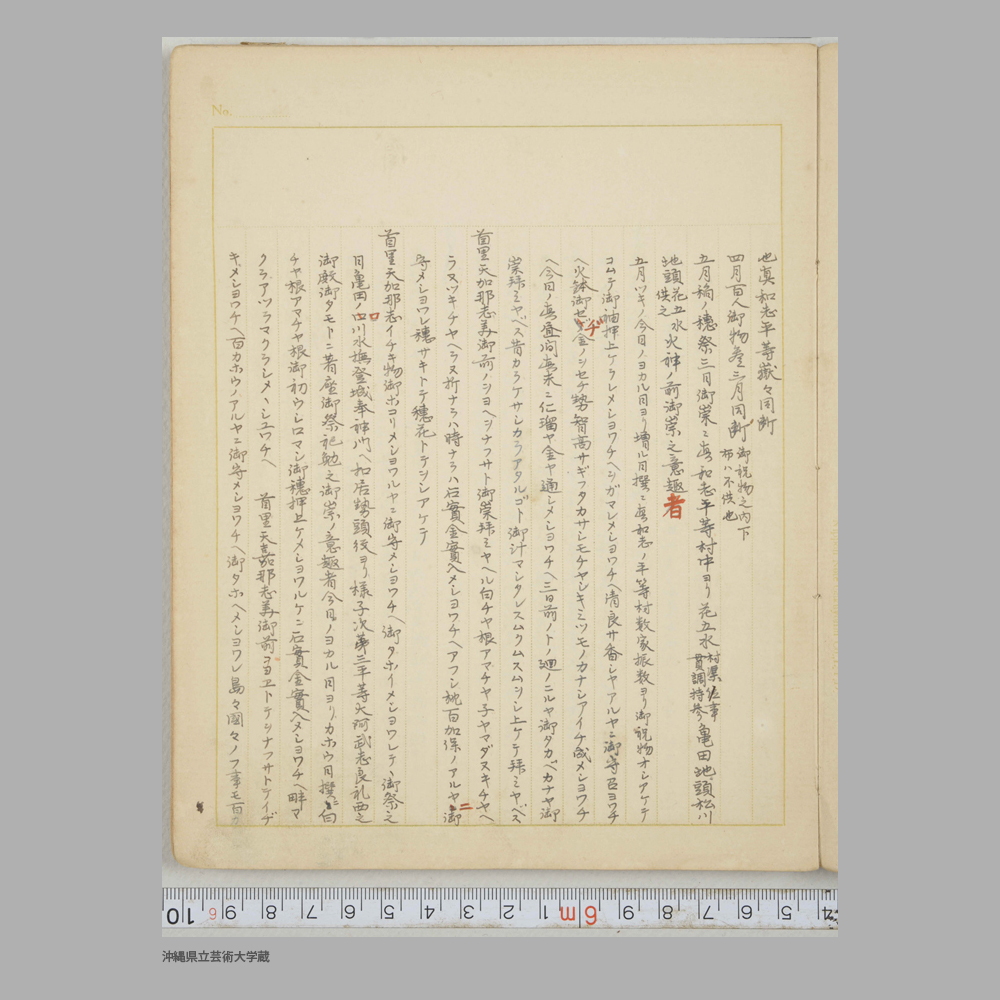 No.
也眞和志平等嶽々同断
四月百人御物参三月同断 御祝物之内下
布ハ不供也
五月稲ノ穂祭三日御崇ニ真和志平等村中ヨリ花五水 亀田地頭松川
地頭花五水火神ノ前御崇之意趣者
供之
五月ツキノ今日ノヨカル日ヨリ増ル日撰ニ真和志ノ平等村数家振数ヨリ御祝物オシアケテ
コムテ御 押上ケラレメショワチヘ メショワチヘ清良サ香シャアルヤニ御守召ヨワチ
ヘ火鉢御 金ノ 勢智高サギフタカサシモチヤシキミツモノカナシアイチ成メショワチ
ヘ今日ノ真 向真末ニ仁瑠ヤ金ヤ通シメショワチヘ三日前ノトノ廻ノニルヤ御タカベカナヤ御
崇拝ミヤベス昔カラケサシカラアタルゴト御汁マシタレスムクムスムンシ上ケテ拝ミヤベス
首里天加那志美御前ノシヨヘシナフサト御崇拝ミヤヘル白チャ根アマチヤ子ヤマダヌキチヤヘ
ラヌツキチヤヘラヌ折ナラハ時ナラハ石實金實入メショワチヘアフシ枕百加保ノアルヤニ御
守メショワレ穂サキトテ穂花トテンシアケテ
首里天加那志イチキ物御ホコリメショワルヤニ御守メショワチヘ御タホイメショワレテヽ御祭之
日亀田ノ口川水撫登城奉神門ヘ和居勢頭後ヨリ様子次第三平等大阿武志良礼西之
御殿御タモトニ着座御祭祀勉之御崇ノ意趣者今日ノヨカル日ヨリカホウ日撰ニ白
チヤ根アマチヤ根御初ウシロマシ御穂押上ケメショワルケニ石實金實入メショワチヘ畔マ
クラアツラマクラシメヽショワチヘ 首里天嘉那志美御前ヲヨエトテシナフサトテイチ
キメショワチヘ百カホウノアルヤニ御守メショワチヘ御タホヘメショワレ島々國々ノフ事モ百
10 9 8 7 6 5 4 3 2 1 6m 9 8 7 6 5 4
沖縄県立芸術大学蔵